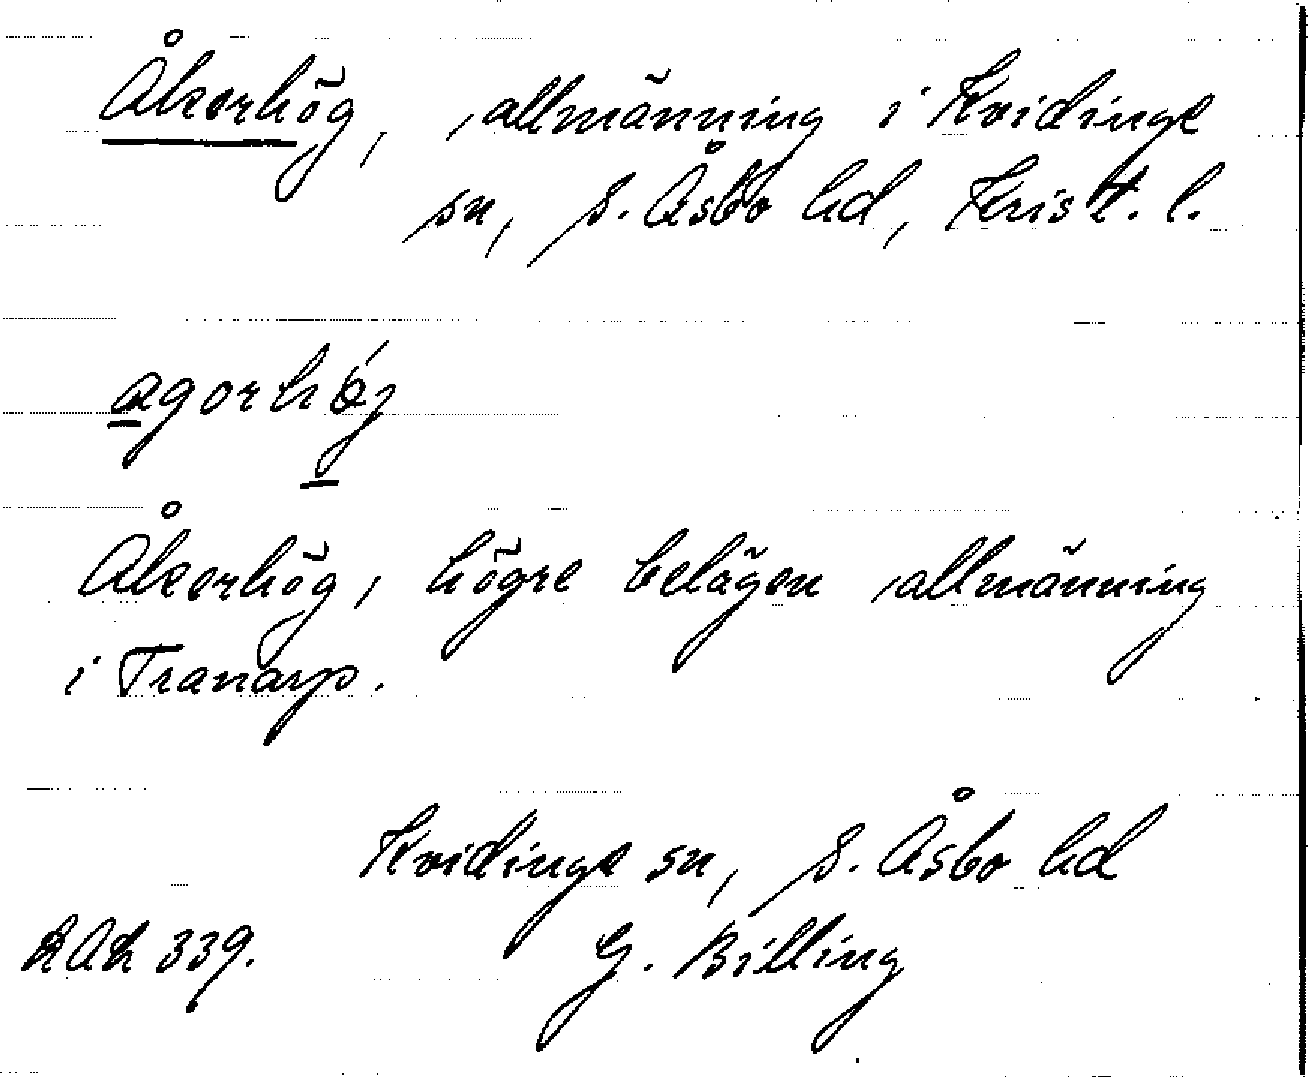 Åkerhög, allmänning i Kvidinge
sn, S. Åsbo hd, Krist. l.
agorhǿj
Åkerhög, högre belägen allmänning
i Tranarp.
Kvidinge sn, S. Åsbo hd
339. G. Billing